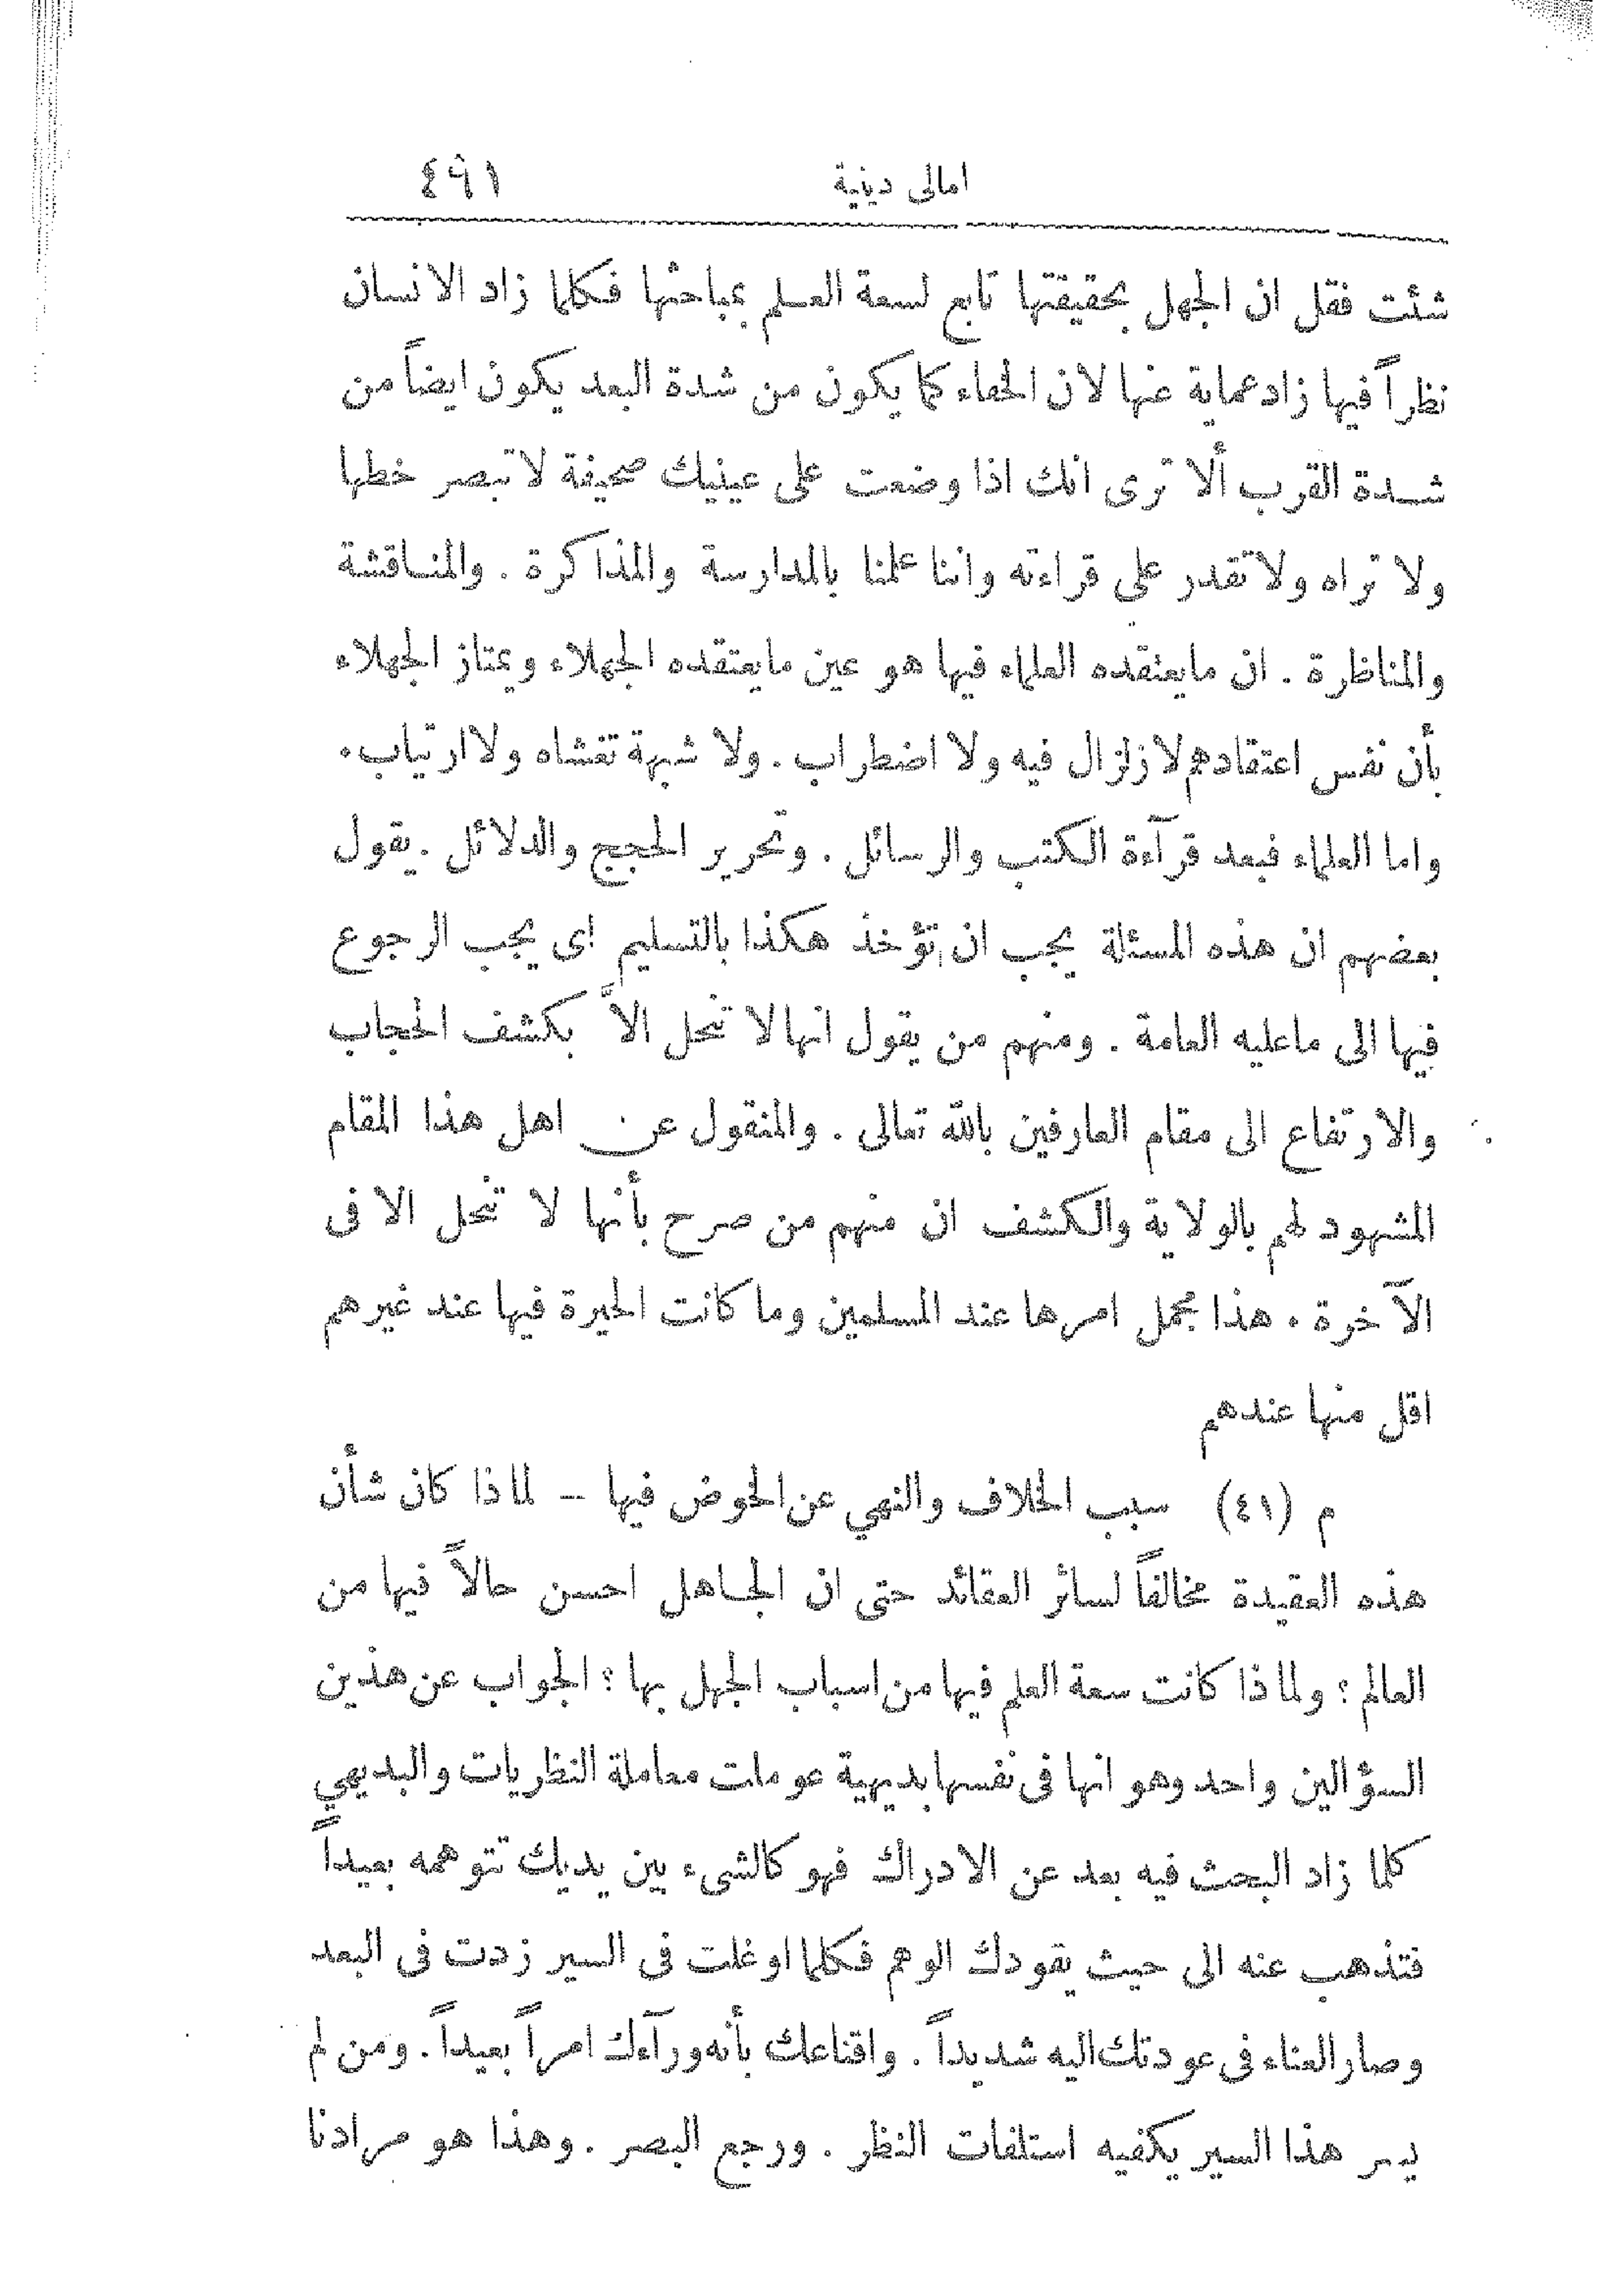 امالى دينية ٤٩١
شئت فقل ان الجهل بحقيقتها تابع لسعة العلم بمباحثها فكلما زاد الانسان
نظراً فيها زاد عماية عنها لان الخفاء كما يكون من شدة البعد يكون ايضاً من
شدة القرب ألا ترى انك اذا وضعت على عينيك صحيفة لا تبصر خطها
ولا تراه ولا تقدر على قراءته واننا علمنا بالمدارسة والمذاكرة . والمناقشة
والمناظرة . ان مايعتقده العلماء فيها هو عين مايعتقده الجهلاء ويمتاز الجهلاء
بأن نفس اعتقادهم لا زلزال فيه ولا اضطراب . ولا شبهة تغشاه ولا ارتياب .
واما العلماء فبعد قرآءة الكتب والرسائل . وتحرير الحجج والدلائل . يقول
بعضهم ان هذه المسئلة يجب ان تؤخذ هكذا بالتسليم اى يجب الرجوع
فيها الى ماعليه العامة . ومنهم من يقول انها لا تنحل الاَّ بكشف الحجاب
والارتفاع الى مقام العارفين بالله تعالى . والمنقول عن اهل هذا المقام
المشهود لهم بالولاية والكشف ان منهم من صرح بأنها لا تنحل الا فى
الآخرة . هذا مجمل امرها عند المسلمين وما كانت الحيرة فيها عند غيرهم
اقل منها عندهم
م (٤١) سبب الخلاف والنهي عن الخوض فيها – لماذا كان شأن
هذه العقيدة مخالفاً لسائر العقائد حتى ان الجاهل احسن حالاً فيها من
العالم ؟ ولماذا كانت سعة العلم فيها من اسباب الجهل بها ؟ الجواب عن هذين
السؤالين واحد وهو انها فى نفسها بديهية عوملت معاملة النظريات والبديهي
كلما زاد البحث فيه بعد عن الادراك فهو كالشىء بين يديك تتوهمه بعيداً
فتذهب عنه الى حيث يقودك الوهم فكلما اوغلت فى السير زدت فى البعد
وصار العناء فى عودتك اليه شديداً . واقناعك بأنه ورآءك امراً بعيداً . ومن لم
يسر هذا السير يكفيه استلفات النظر . ورجع البصر . وهذا هو مرادنا